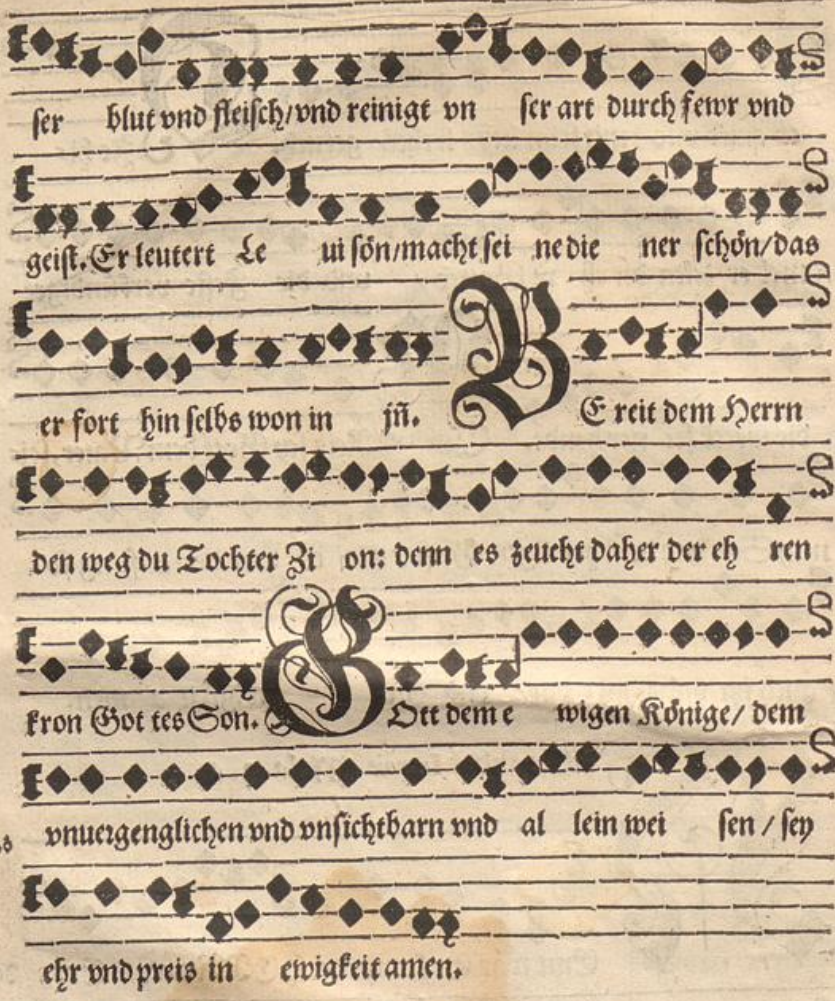 ſer blut vnd fleiſch/vnd reinigt vn ſer art durch fewr vnd
geiſt. Er leutert Le ui ſön/macht ſei ne die ner ſchön/das
er fort hin ſelbs won in jn̄. BE reit dem Herrn
den weg du Tochter Zi on: denn es zeucht daher der eh ren
kron Got tes Son. GOtt dem e wigen Könige/ dem
vnuergenglichen vnd vnſichtbarn vnd al lein wei ſen / ſey
ehr vnd preis in ewigkeit amen.